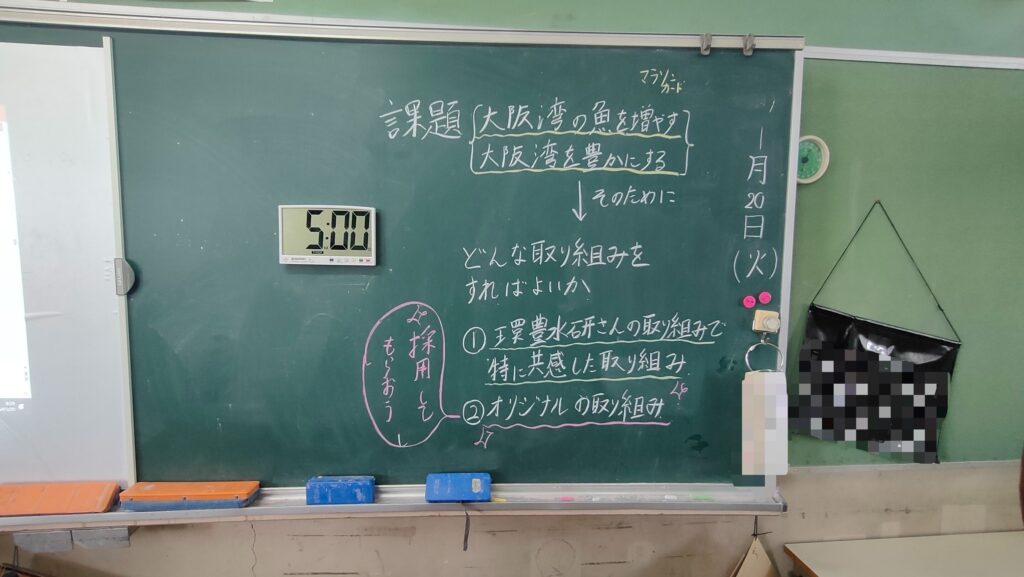 マラソン
カード
課題
大阪湾の魚を増やす
大阪湾を豊かにする
↓そのために
どんな取り組みを
すればよいか
①環農水研さんの取り組みで
特に共感した取り組み
②オリジナルの取り組み
採用して
もらおう
1月20日
(火)
5:00